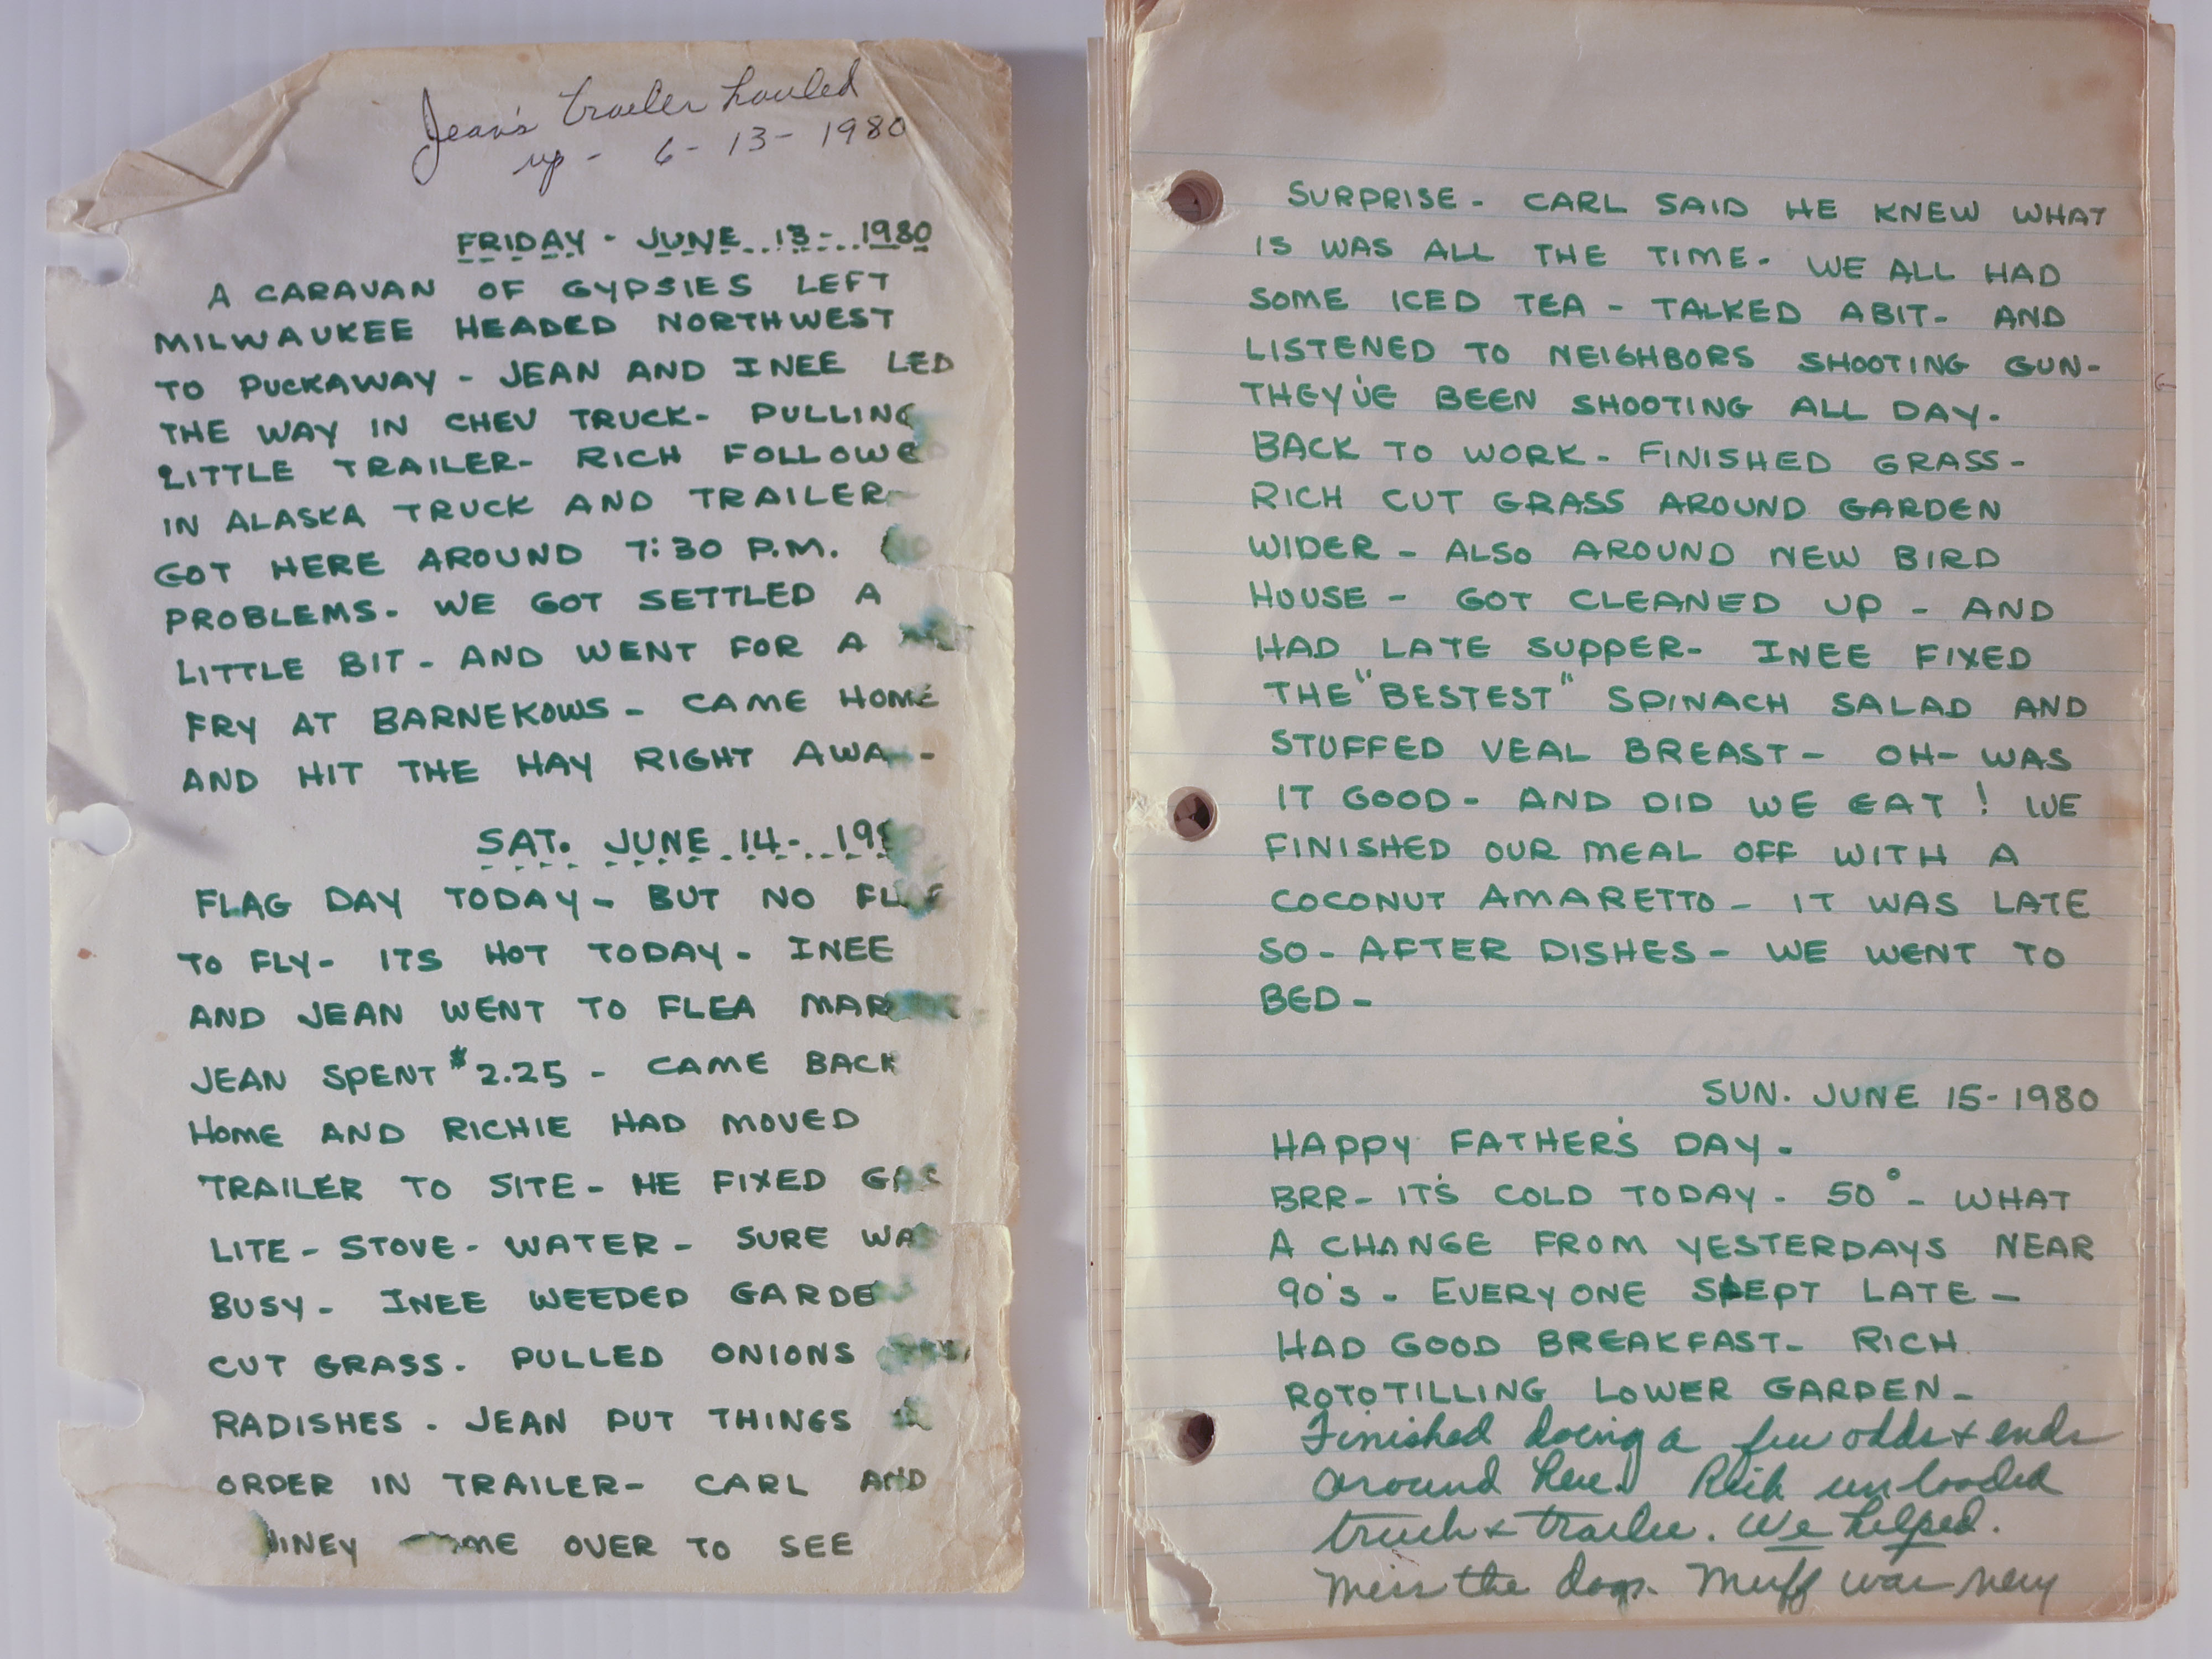 Jean's trailer hauled
up - 6-13-1980
FRIDAY - JUNE 13 - 1980
A CARAVAN OF GYPSIES LEFT
MILWAUKEE HEADED NORTHWEST
TO PUCKAWAY - JEAN AND INEE LED
THE WAY IN CHEV TRUCK - PULLING
LITTLE TRAILER - RICH FOLLOWED
IN ALASKA TRUCK AND TRAILER -
GOT HERE AROUND 7:30 P.M.
PROBLEMS - WE GOT SETTLED A
LITTLE BIT - AND WENT FOR A
FRY AT BARNEKOWS - CAME HOME
AND HIT THE HAY RIGHT AWA -
SAT. JUNE 14 - 198
FLAG DAY TODAY - BUT NO FLAG
TO FLY - ITS HOT TODAY - INEE
AND JEAN WENT TO FLEA MAR
JEAN SPENT $2.25 - CAME BACK
HOME AND RICHIE HAD MOVED
TRAILER TO SITE - HE FIXED GAS
LITE - STOVE - WATER - SURE WAS
BUSY - INEE WEEDED GARDE
CUT GRASS - PULLED ONIONS
RADISHES - JEAN PUT THINGS
ORDER IN TRAILER - CARL AND
OVER TO SEE
SURPRISE - CARL SAID HE KNEW WHAT
IS WAS ALL THE TIME - WE ALL HAD
SOME ICED TEA - TALKED ABIT - AND
LISTENED TO NEIGHBORS SHOOTING GUN -
THEY'VE BEEN SHOOTING ALL DAY.
BACK TO WORK - FINISHED GRASS -
RICH CUT GRASS AROUND GARDEN
WIDER - ALSO AROUND NEW BIRD
HOUSE - GOT CLEANED UP - AND
HAD LATE SUPPER - INEE FIXED
THE "BESTEST" SPINACH SALAD AND
STUFFED VEAL BREAST - OH - WAS
IT GOOD - AND DID WE EAT! WE
FINISHED OUR MEAL OFF WITH A
COCONUT AMARETTO - IT WAS LATE
SO - AFTER DISHES - WE WENT TO
BED -
SUN. JUNE 15 - 1980
HAPPY FATHER'S DAY -
BRR - IT'S COLD TODAY - 50° - WHAT
A CHANGE FROM YESTERDAYS NEAR
90's - EVERYONE SLEPT LATE -
HAD GOOD BREAKFAST - RICH
ROTOTILLING LOWER GARDEN -
Finished doing a few odds & ends
around here. Rich unloaded
truck & trailer. We helped.
Miss the dogs. Muff was very